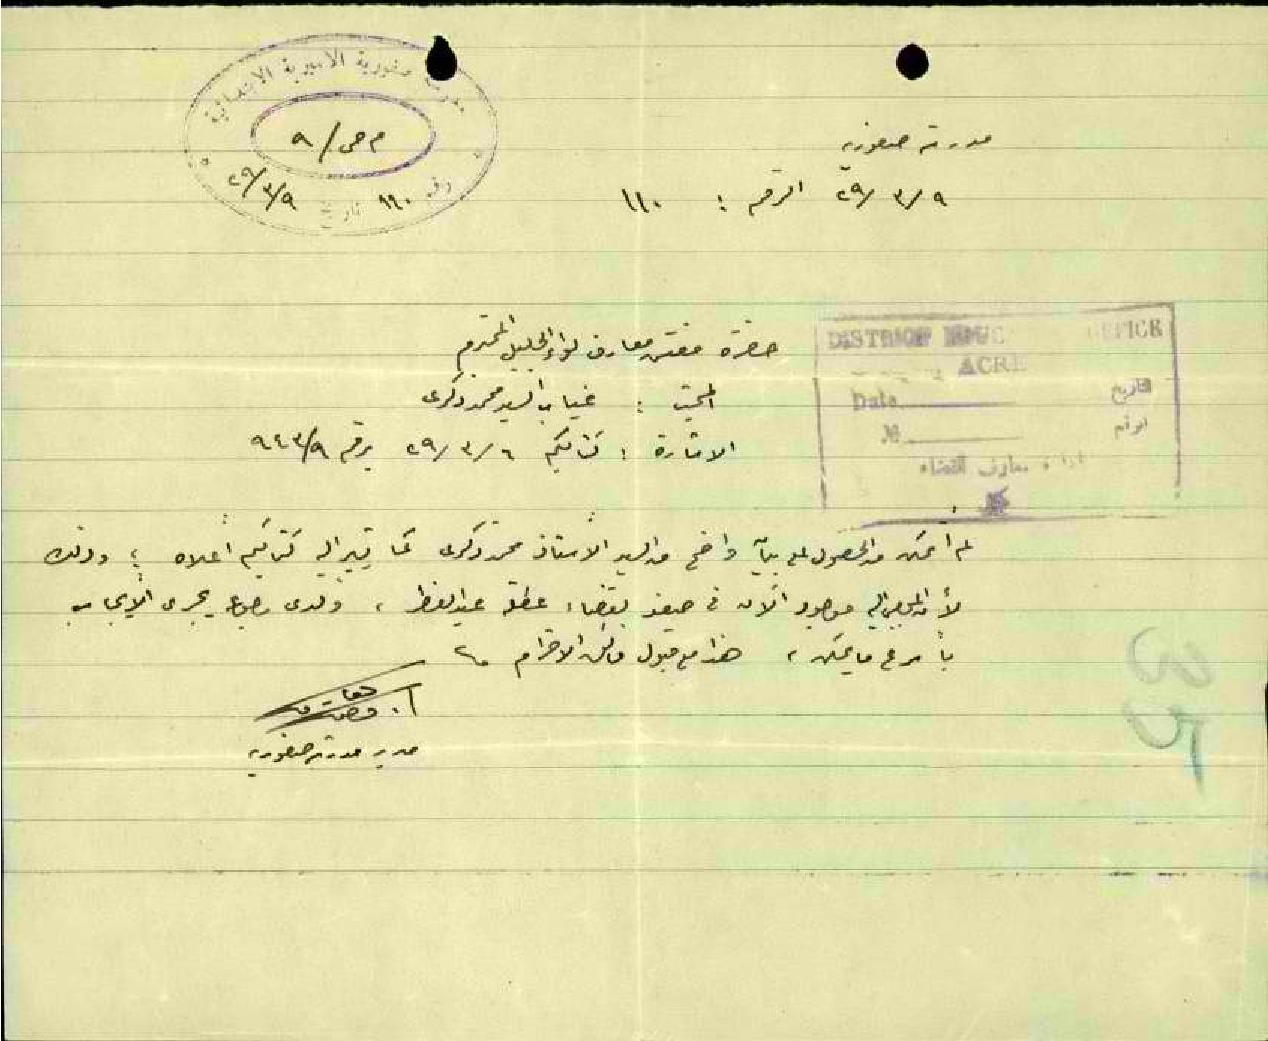 مدرسة صفورية الاميرية الابتدائية
م ص/٩
رقم ١١٠ تاريخ ٢٩/٣/٩
مدرسة صفورية
٢٩/٣/٩ الرقم : ١١٠
DISTRICT OFFICE
ACRE
Date التاريخ
№ الرقم
معارف القضاء
حضرة مفتش معارف لواء الجليل المحترم
المبحث : غياب السيد محمد زكري
الاشارة : كتابكم ٢٩/٣/٦ برقم ٩٤٣/٩
لم أتمكن من الحصول على بيان واضح من السيد الأستاذ محمد زكري كما يشير اليه كتابكم أعلاه ؛ وذلك
لأن الموصى اليه موجود الآن في صفد لقضاء عطلة عيد الفطر ، ولدى رجوعه يجري الإيجاب
بأسرع ما يمكن ، هذا مع قبول فائق الاحترام
مدير مدرسة صفورية